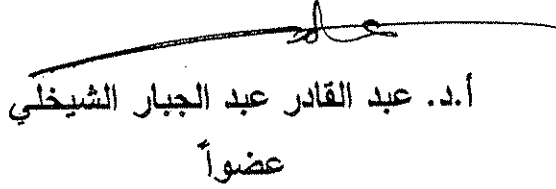 أ.د. عبد القادر عبد الجبار الشيخلي
عضواً